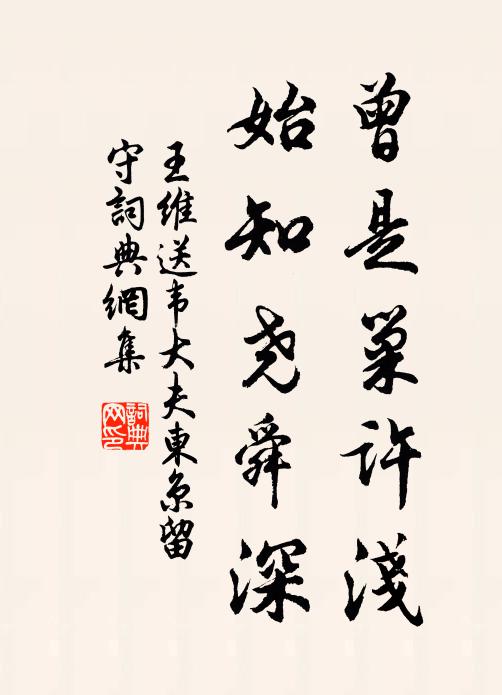 曾是巢许浅
始知尧舜深
王维送韦大夫東京留
守詞典網集
詞典网印